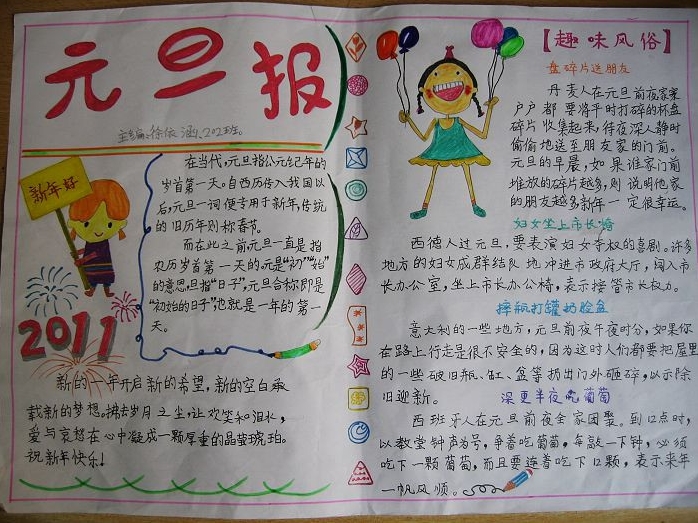 元旦报
主编:徐依涵、202班。
新年好
2011
在当代,元旦指公元纪年的
岁首第一天。自西历传入我国以
后,元旦一词便专用于新年,传统
的旧历年则称春节。
而在此之前元旦一直是指
农历岁首第一天的.元是“初”“始”
的意思,旦指“日子”,元旦合称即是
“初始的日子”也就是一年的第一
天。
新的一年开启新的希望,新的空白承
载新的梦想。拂去岁月之尘,让欢笑和泪水,
爱与哀愁在心中凝成一颗厚重的晶莹琥珀。
祝新年快乐!
【趣味风俗】
盘碎片送朋友
丹麦人在元旦前夜家家
户户都要将平时打碎的杯盘
碎片收集起来,待夜深人静时
偷偷地送至朋友家的门前。
元旦的早晨,如果谁家门前
堆放的碎片越多,则说明他家
的朋友越多新年一定很幸运。
妇女坐上市长椅
西德人过元旦,要表演妇女夺权的喜剧。许多
地方的妇女成群结队地冲进市政府大厅,闯入市
长办公室,坐上市长办公椅,表示接管市长权力。
摔瓶打罐扔脸盆
意大利的一些地方,元旦前夜午夜时分,如果你
在路上行走是很不安全的,因为这时人们都要把屋里
的一些破旧瓶、缸、盆等扔出门外砸碎,以示除
旧迎新。
深更半夜吃葡萄
西班牙人在元旦前夜全家团聚。到12点时,
以教堂钟声为号,争着吃葡萄,每敲一下钟,必须
吃下一颗葡萄,而且要连着吃下12颗,表示来年
一帆风顺。